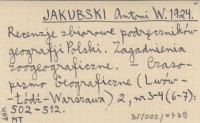 JAKUBSKI Antoni W. 1924.
Recenzje zbiorowe podręczników
geografji Polski. Zagadnienia
zoogeograficzne. — Czaso-
pismo Geograficzne (Lwów-
-Łódź-Warszawa) 2, nr 3-4 (6-7):
502-512.
MT